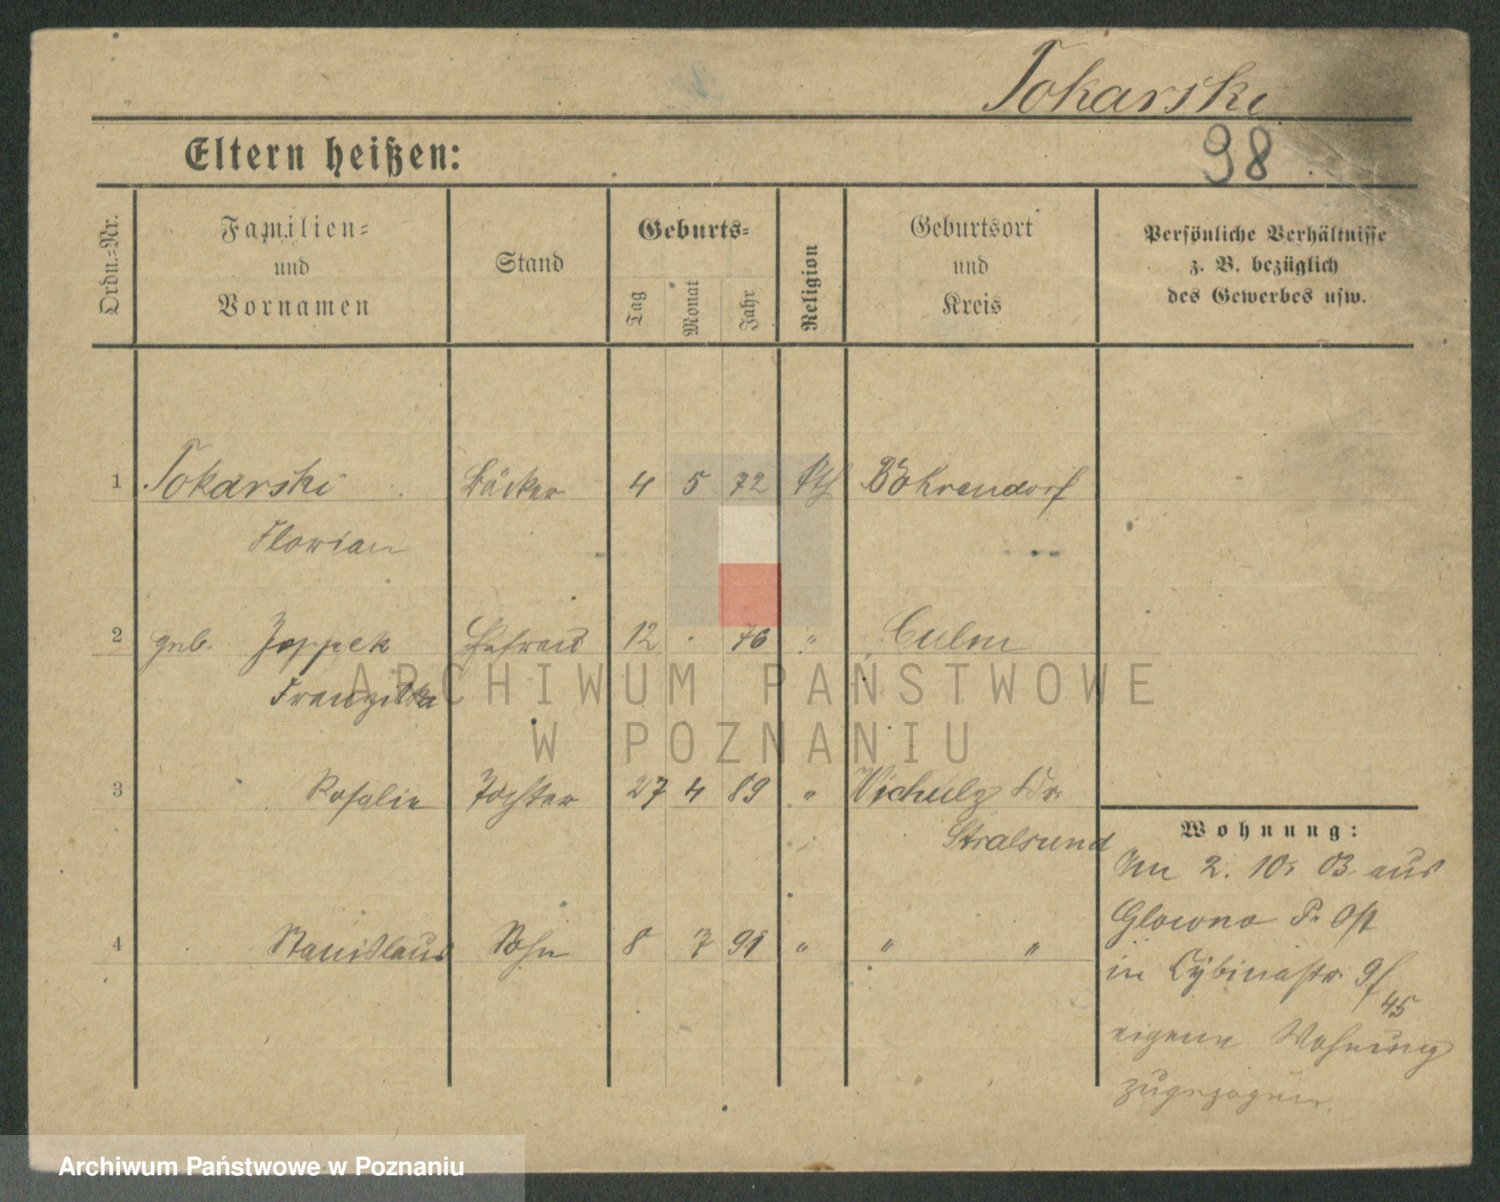 Tokarski
98
Eltern heißen:
Ordn.=Nr.
Familien=
und
Vornamen
Stand
Geburts=
Tag
Monat
Jahr
Religion
Geburtsort
und
Kreis
Persönliche Verhältnisse
z. B. bezüglich
des Gewerbes usw.
1 Tokarski Bäcker 4 5 72 kth Bohrendorf
Florian
2 geb. Joppek Ehefrau 12 · 76 " Culm
Franziska
ARCHIWUM PAŃSTWOWE
W POZNANIU
3 Rosalie Tochter 27 4 89 " Kr.
Stralsund
4 Stanislaus Sohn 8 7 91 " " "
Wohnung:
Am 2. 10. 03 aus
Glowno P. Ost
in Cybinastr. 9/
45
eigene Wohnung
zugezogen.
Archiwum Państwowe w Poznaniu